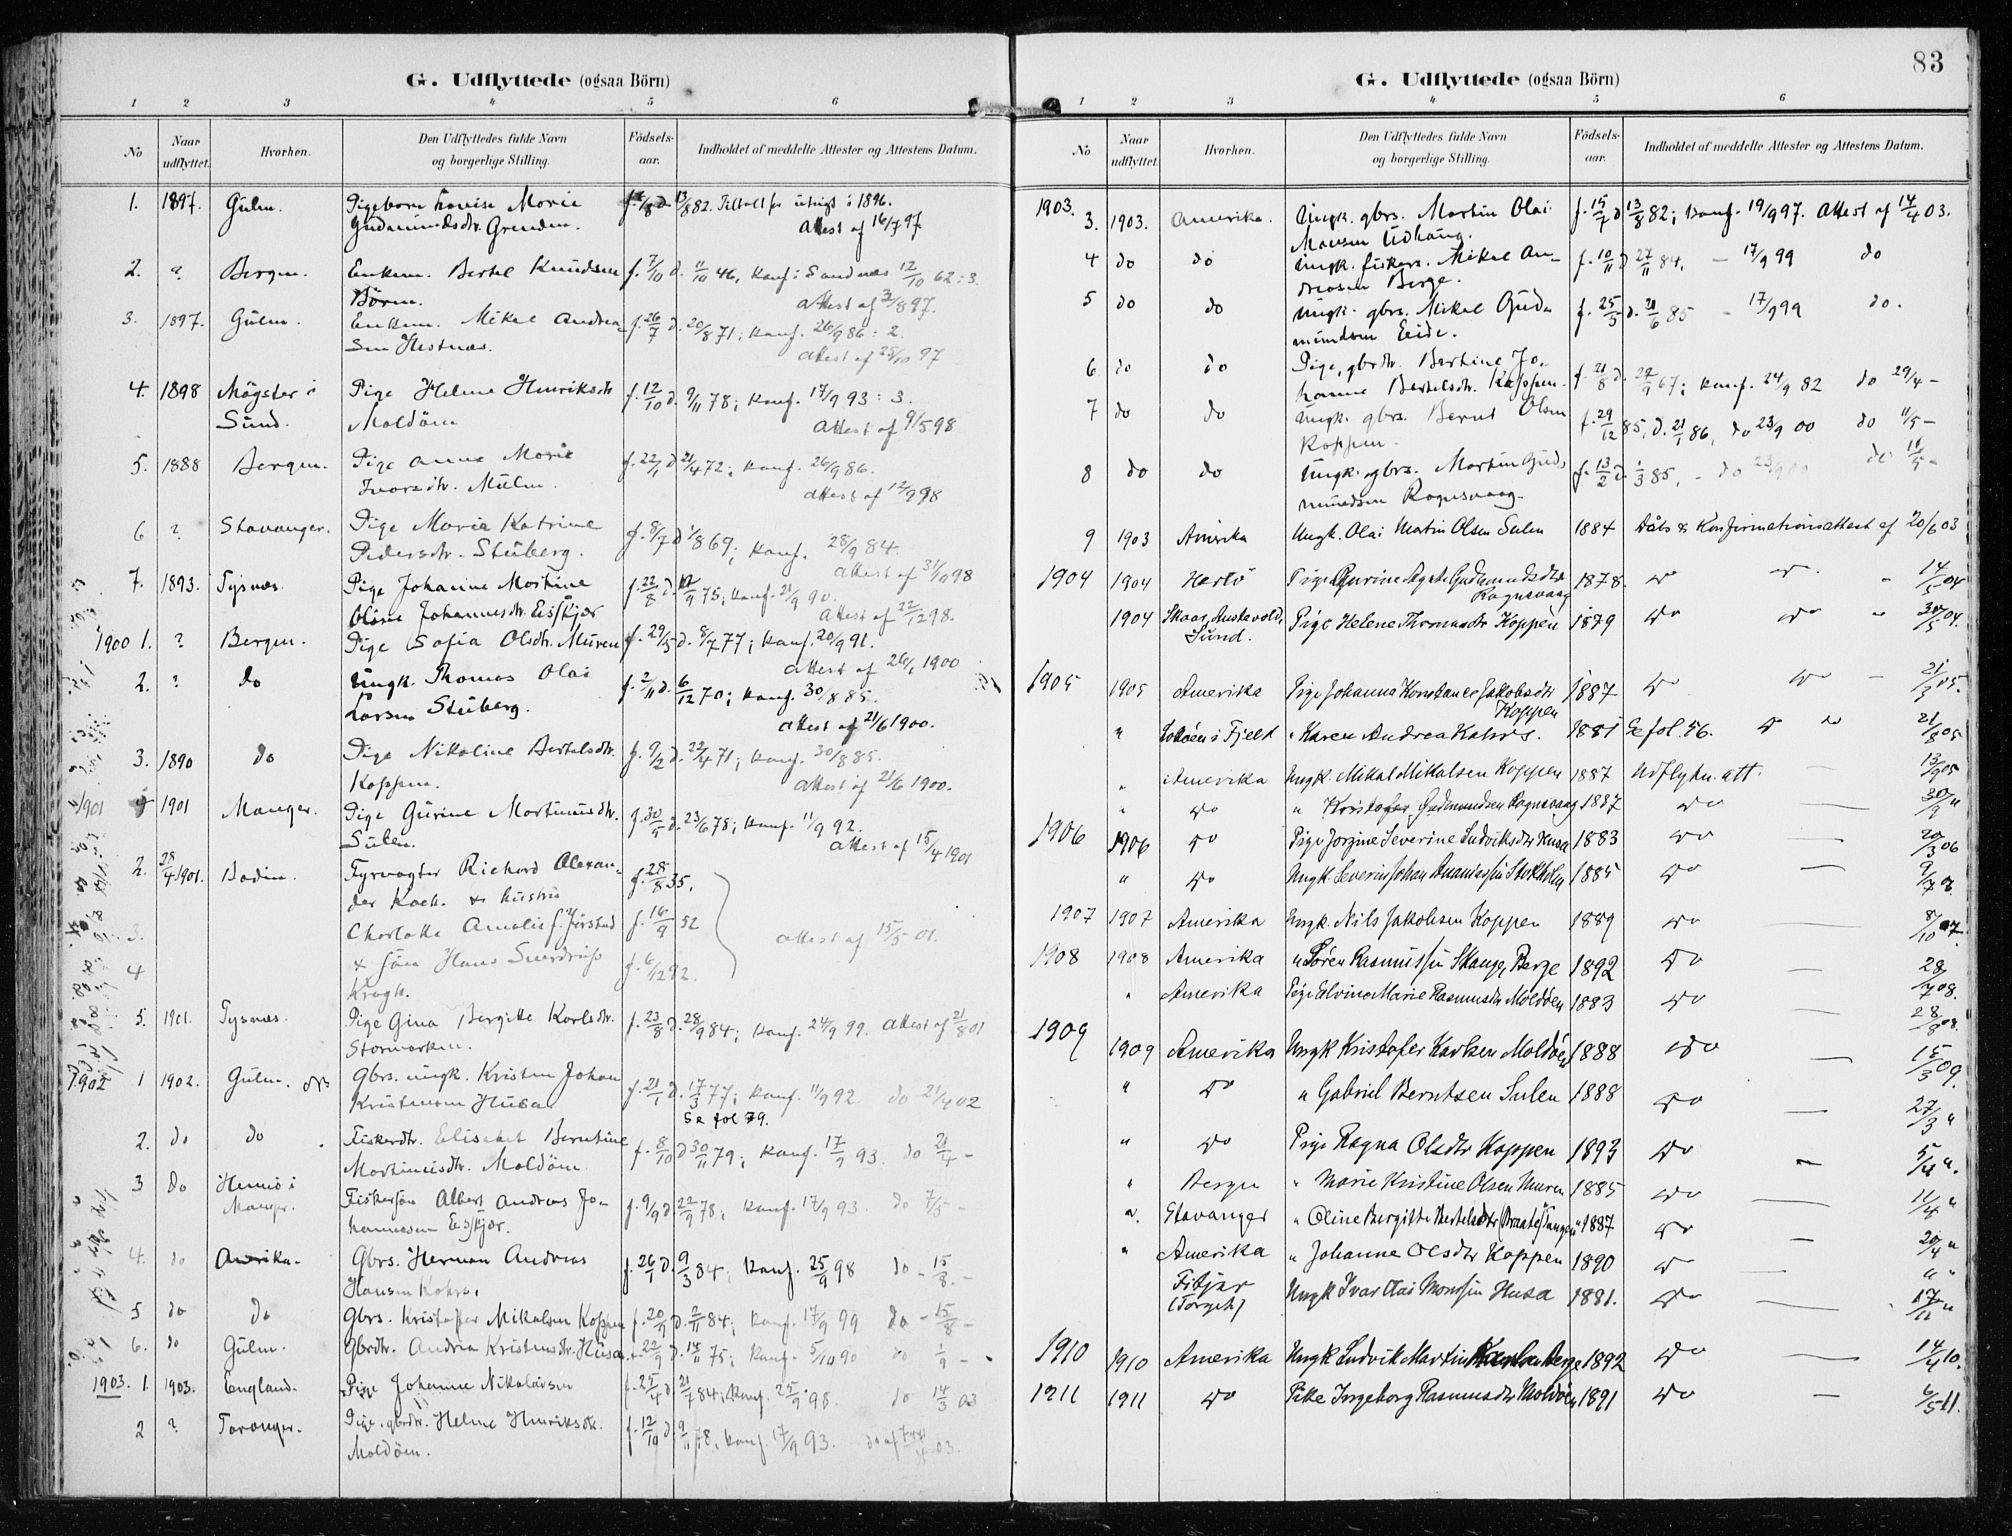 G. Udflyttede (ogsaa Börn)
1 2 3 4 5 6
No Naar udflyttet. Hvorhen. Den Udflyttedes fulde Navn og borgerlige Stilling. Födsels-aar. Indholdet af meddelte Attester og Attestens Datum.
1. 1897. Gulen. Pigebarn Lovise Marie
Gudmundsdtr. Grinden. Attest af 16/7 97.
2. ? Bergen. Enkem. Bertel Knudsen f. 7/10 d. 11/10 46, Konf. i Sandnæs 12/10 62: 3.
Attest af
3. 1897. Gulen. Enkem. Mikal Andrea- f. 26/7 d. 20/8 71; Konf. 26/9 86: 2.
sen Hestnæs. Attest af 25/10 97
4. 1898 Møgster i Pige Helene Henriksdtr f. 12/10 d. 9/11 78; Konf. 17/9 93: 3.
Sund. Moldöen Attest af 9/5 98
5. 1888 Bergen. Pige Anna Marie f. 22/1 d. 21/4 72; Konf. 26/9 86.
Ivarsdtr. Attest af 12/9 98
6 ? Stavanger. Pige Maria Katrine f. 8/7 d. 1/8 69; Konf. 28/9 84.
Pedersdtr. Stuberg. Attest af 31/10 98
7. 1893. Tysnæs. Pige Johanne Martine
Oline Johannesdtr. Eisskjær Attest af 22/12 98.
1900 1. ? Bergen. Pige Sofia Olsdtr. Muren f. 29/5 d. 8/7 77; Konf. 20/9 91.
Attest af 1900
2. ? do Ungk. Thomas Olai f. 2/11 d. 6/12 70; Konf. 30/8 85.
Larsen Stuberg. Attest af 21/6 1900.
3. 1890 do Pige Nikoline Bertelsdtr. f. 9/2 d. 22/4 71; Konf. 30/8 85.
Koppen. Attest af 21/6 1900.
1901 1901 Manger. Pige Gurine Martinusdtr. f. 30/5 d. 23/6 78; Konf. 11/9 92.
Sulen. Attest af 15/4 1901
2. 28/4 1901. Bodin. Fyrvogter Richard Alexan- f. 28/8 35.
der Koch. & hustru
3. Charlotte Amalie f. f. 16/9 52 Attest af 15/5 01.
4 & søn Hans f. 6/12 92.
Krogh.
5. 1901. Tysnæs. Pige Gina Bergitte Karlsdtr. f. 23/8 d. 28/9 84; Konf. 24/9 99. Attest af 21/8 01
Stormarken.
1902 1 1902. Gulen. Gbrs. ungk. Kristen Johan f. 21/1 d. 17/3 77; Konf. 11/9 92. do 21/4 02
Kristensen Husa. Se fol 79.
2. do do Fiskerdtr. Elisabet Berntine f. 8/10 d 30/11 79; Konf. 17/9 93. do 21/4 -
Martinusdtr. Moldöen
3 do i Fiskersøn Albert Andreas Jo- f. 9/9 d. 22/9 78; Konf. 17/9 93. do 7/5 -
Manger. hannesen Eisskjær.
4. do Amerika. Gbrs. Herman Andreas f. 26/1 d. 9/3 84; Konf. 25/9 98 do - 15/8. -
Hansen Kahrs.
5 do do Gbrs. Kristoffer Mikalsen Koppen f. 20/9 d. 2/11 84; Konf. 17/9 99 do - 15/8 -
6. do Gulen. Gbrdtr. Andrea Kristensdtr. Husa f. 22/9 d. 14/11 75; Konf. 5/10 90 do 1/9 -
1903. 1. 1903. England. Pige Johanne Nikolaisen f. 25/4 d. 21/7 84; Konf. 25/9 98. do 14/3 03
2 ? Pige, gbrdtr. Helene Henriksdtr. f. 12/10 d. 9/11 78, Konf. 17/9 93.
Moldöen.
83
G. Udflyttede (ogsaa Börn)
1 2 3 4 5 6
No Naar udflyttet. Hvorhen. Den Udflyttedes fulde Navn og borgerlige Stilling. Födsels-aar. Indholdet af meddelte Attester og Attestens Datum.
1903. 3. 1903. Amerika. Ungk. gbrs. Martin Olai d 13/8 82; Konf. 19/9 97. Attest af 14/4 03.
Monsen Udhaug.
4 do do Ungk. fiskers. Mikal An- f. 10/11 d 27/11 84. - 17/9 99 do
dreasen Berge.
5 do do Ungk. gbrs. Mikal Gud- f. 25/5 d. 21/6 85 - 17/9 99 do.
mundsen Eide.
6 do do Pige, gbrdtr. Bertine Jo- f. 21/8 d. 22/9 67; Konf. 24/9 82 do 29/4 -
hanne Bertelsdtr. Koppen.
7 do do Ungk. gbrs. Bernt Olsen f. 29/12 85, d. 21/1 86, do 23/9 00 do 11/5 -
Koppen.
8 do do Ungk. gbrs. Martin Gud- f. 13/2 d. 1/3 85, - do 23/9 00 do 11/5 -
mundsen Rognsvaag.
9 1903 Amerika Ungk. Olai Martin Olsen Sulen 1884 Daabs & Konfirmationsattest af 20/6 03
1904 1904 Herlö Pige Gurine Agate Gudmundsdtr 1878. do do. " 14/5 04
Rognsvaag
1904 Skaar, Austevold, Pige Helene Thomasdtr Koppen 1879 do do " 30/5 04.
Sund.
1905 1905 Amerika Pige Johanna Konstance Jakobsdtr 1887 do do - 21/3 05.
Koppen
" i Fjeld " Karen Andrea Kahrs. 1881 Se fol. 56. do do 21/8 05
" Amerika Ungk. Mikal Mikalsen Koppen 1887 Udflytn. att. — 13/9 05
" do " Kristofer Gudmundsen Rognsvaag 1887 do — 30/9 "
1906 1906 do Pige Jorgine Severine Ludviksdtr Husa 1883 do — 20/3 06
" do Ungk. Severin Johan Ananiassen Stokholm 1885 do — 9/7 "
1907 1907 Amerika Ungk. Nils Jakobsen Koppen 1889 do — 8/10 07.
1908 1908 Amerika " Søren Rasmussen Skauge, Berge 1892 do — 28/7 08.
" Amerika Pige Elvina Marie Rasmusdtr Moldöen 1883 do — 28/8 08.
1909 1909 Amerika Ungk Kristofer Karlsen Moldöen 1888 do — 15/3 09.
" do " Gabriel Berntsen Sulen 1888 do — 27/3 "
" do Pige Ragna Olsdtr Koppen 1893 do — "
" Bergen " Marie Kristine Olsen Muren 1885 do — 11/4 "
" Stavanger " Oline Bergitte Bertelsdtr (Braate) Tangen 1887 do — 20/4 "
" Amerika " Johanne Olsdtr Koppen 1890 do — " "
Fitjar Ungk Ivar Olai Monssen Husa 1881. do — 17/11 "
1910 1910 Amerika Ungk Ludvik Martin Berge 1892 do — 14/4 10.
1911 1911 do Pike Ingeborg Rasmusdtr Moldöen 1891 do — 6/5 11.